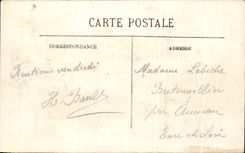 CARTE POSTALE
CORRESPONDANCE
ADRESSE
Rentrons vendredi
H. Brull
Madame Labiche
par Auneau
Eure et Loir